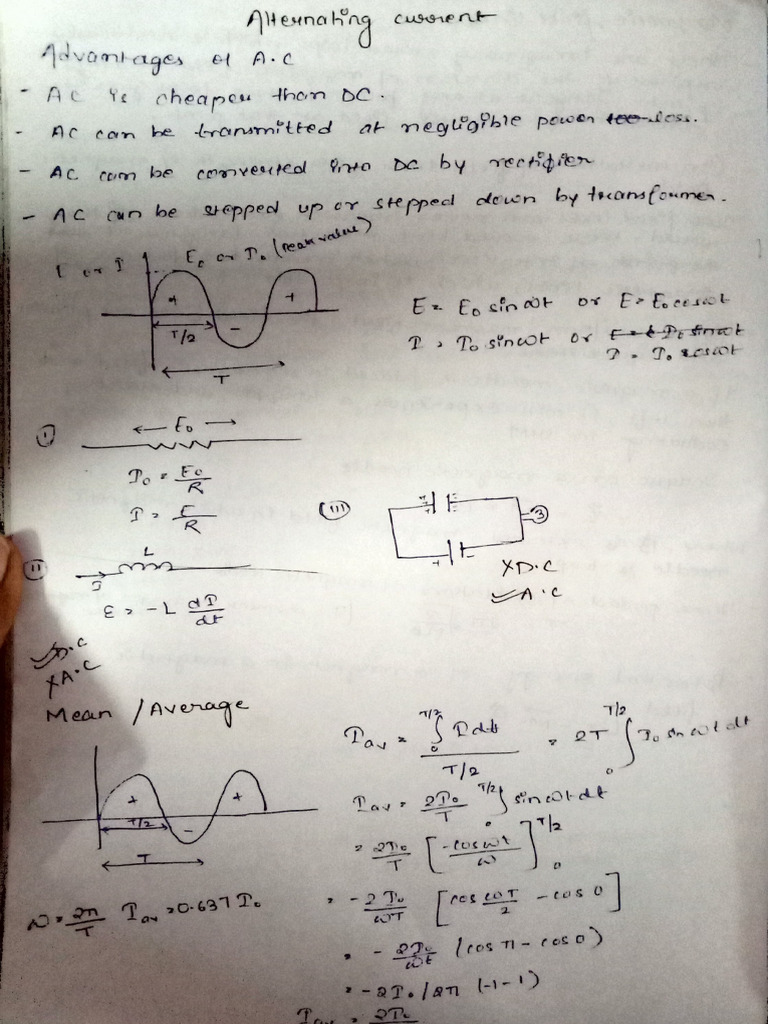 Alternating current
Advantages of A.C
- AC is cheaper than DC.
- AC can be transmitted at negligible power loss.
- AC can be converted into DC by rectifier
- AC can be stepped up or stepped down by transformer.
E or I
E₀ or I₀ (peak value)
+ - +
T/2
T
E = E₀ sin ωt or E = E₀ cos ωt
I = I₀ sin ωt or
I = I₀ cos ωt
(i)
← E₀ →
I₀ = E₀/R
I = E/R
(ii)
L
I
ε = -L dI/dt
✓ D.C
X A.C
(iii)
+ -
+ -
X D.C
✓ A.C
Mean / Average
+ - +
T/2
T
ω = 2π/T I_av = 0.637 I₀
I_av = ∫₀^{T/2} I dt / T/2 = 2T ∫₀^{T/2} I₀ sin ωt dt
I_av = 2I₀/T ∫₀^{T/2} sin ωt dt
= 2I₀/T [-cos ωt/ω]₀^{T/2}
= -2I₀/ωT [cos ωT/2 - cos 0]
= -2I₀/ωt (cos π - cos 0)
= -2I₀/2π (-1-1)
I_av = 2I₀